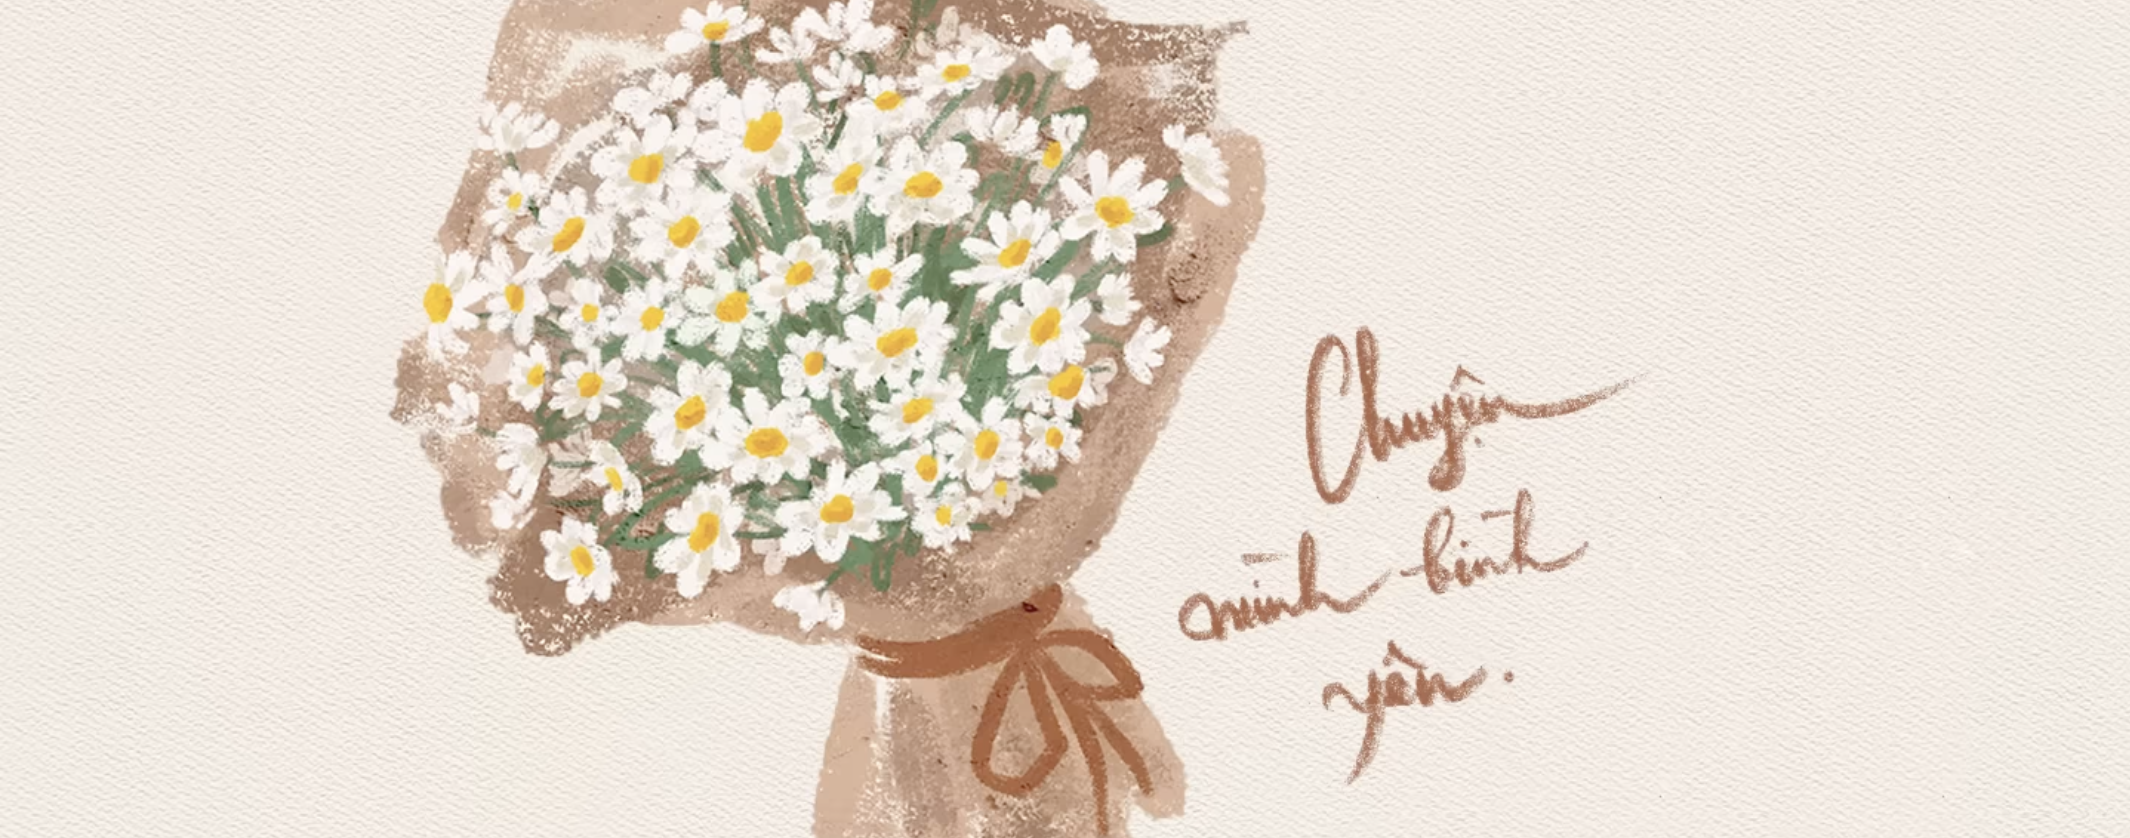 Chuyện
mình bình
yên.